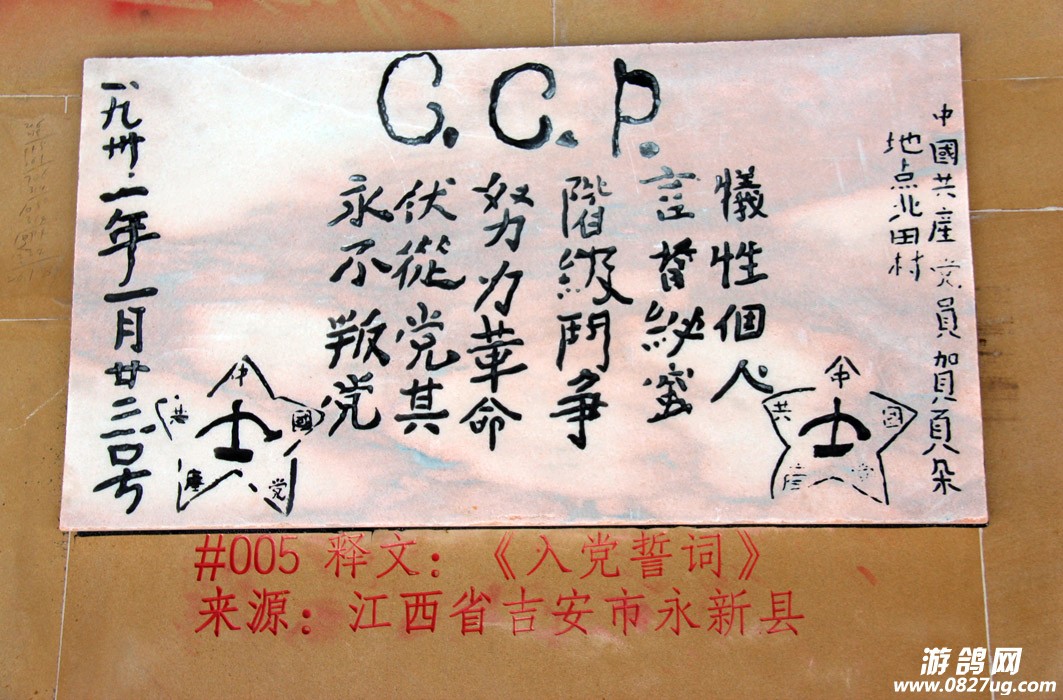 C.C.P.
中國共產党員賀頁朵
地点北田村
犧性個人
言首紗蜜
階級鬥争
努力革命
伏從党其
永不叛党
一九卅一年一月廿三号
中
國
共
產
党
中
國
共
產
党
#005 释文：《入党誓词》
来源：江西省吉安市永新县
游鸽网
www.0827ug.com